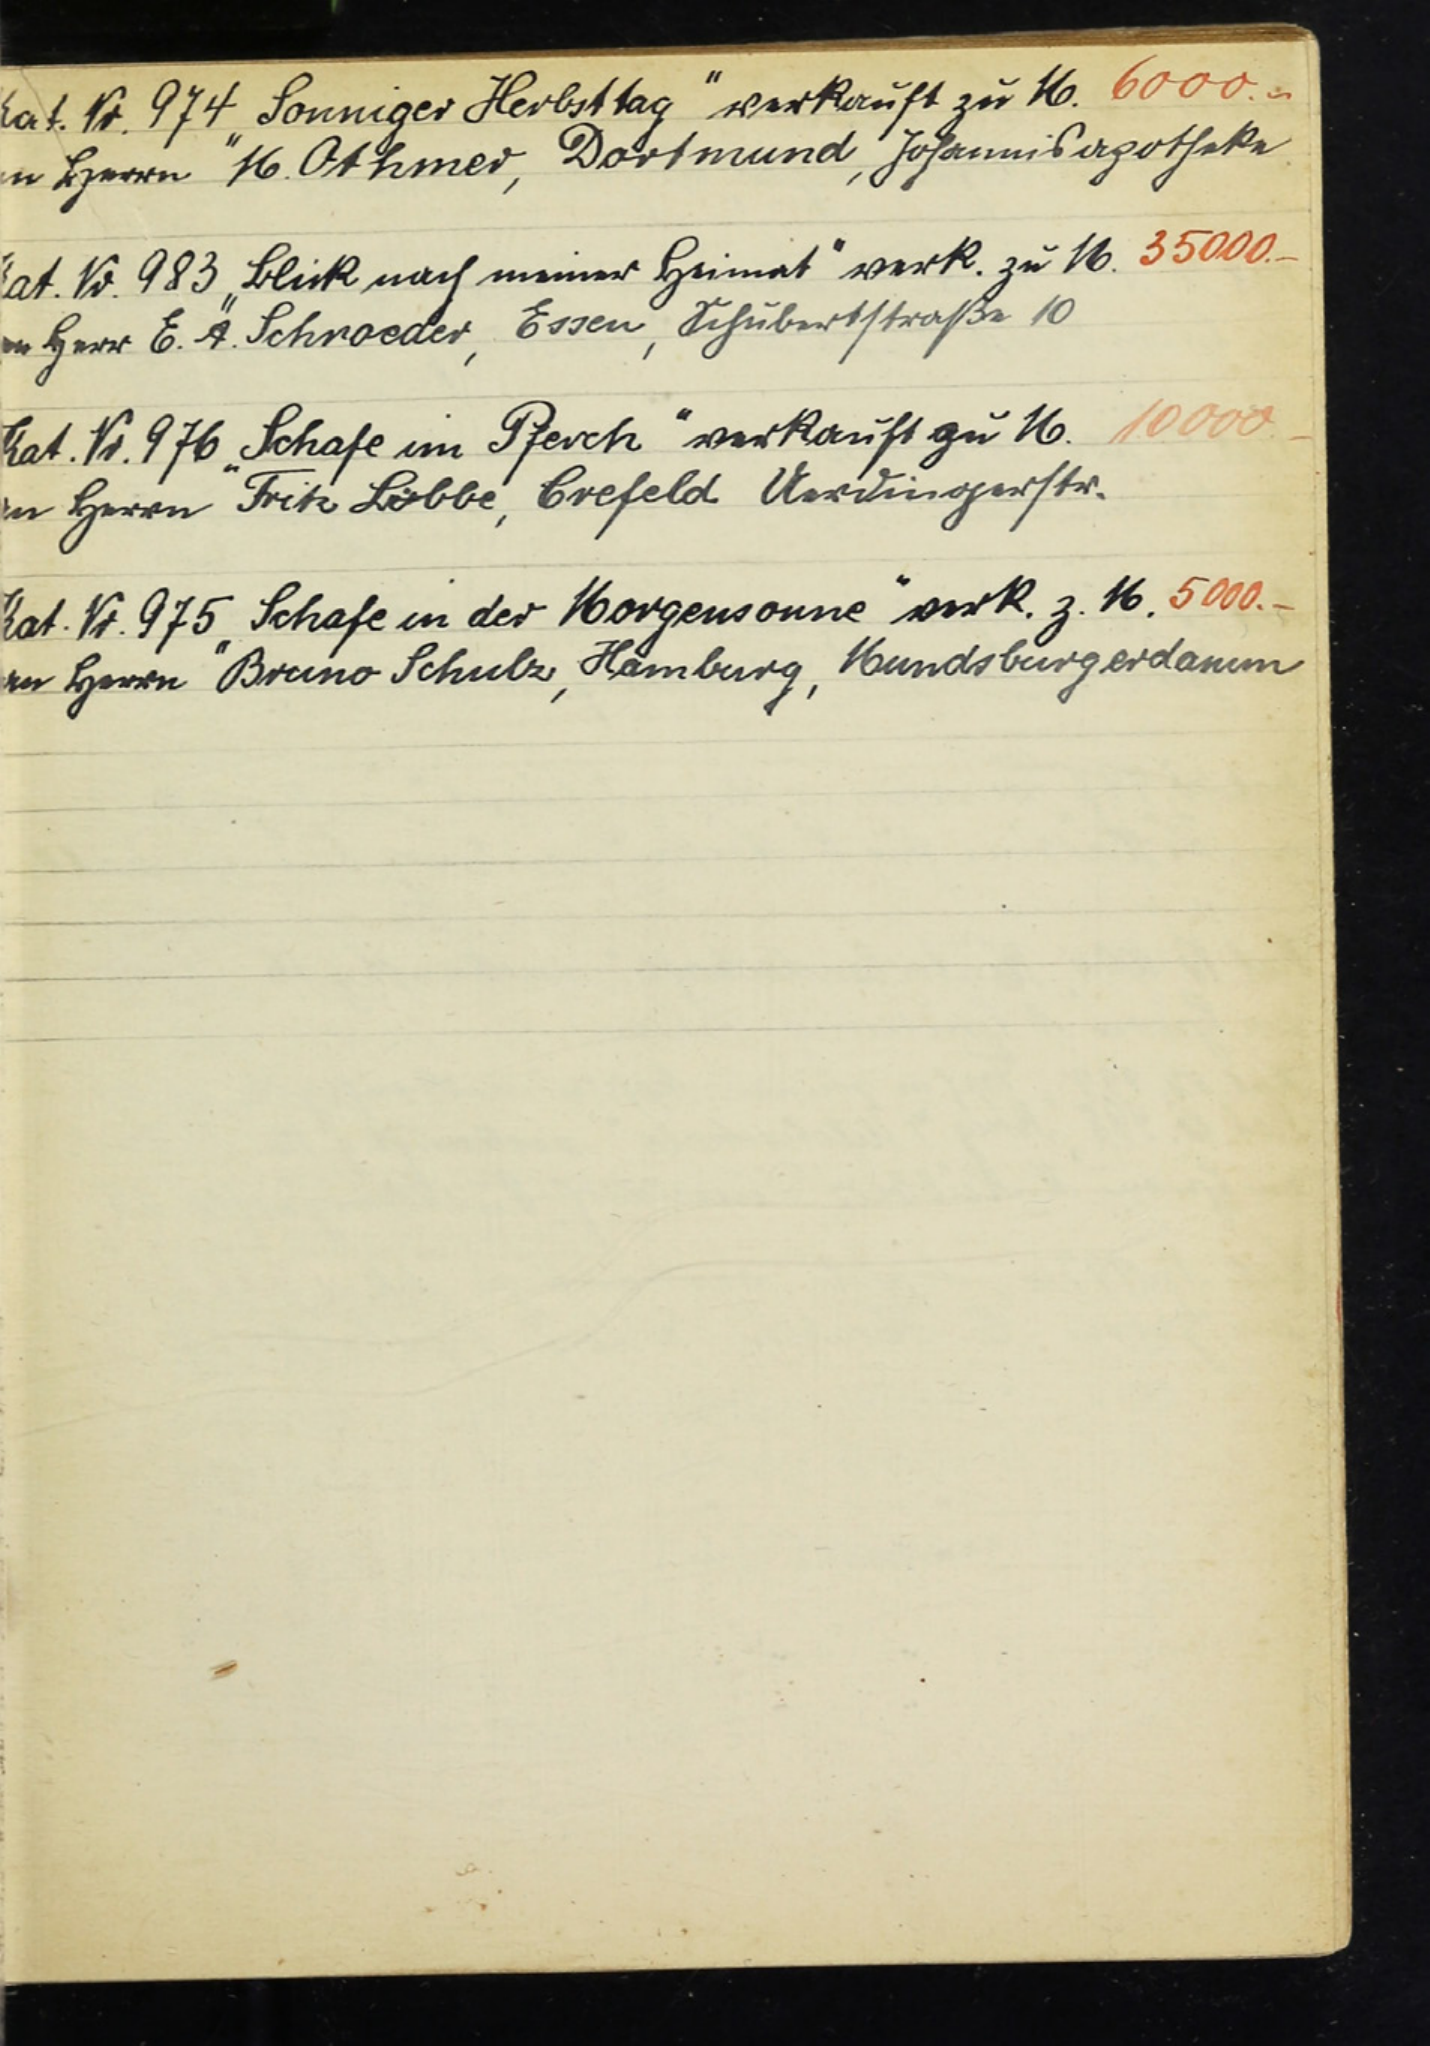 Kat. Nr. 974 „Sonniger Herbsttag" verkauft zu M. 6000.-
an Herrn M. Othmer, Dortmund, Johannisapotheke
Kat. Nr. 983 „Blick nach meiner Heimat" verk. zu M. 35000.-
an Herr E. A. Schroeder, Essen, Schubertstraße 10
Kat. Nr. 976 „Schafe im Pferch" verkauft zu M. 10000.-
an Herrn Fritz Löbbe, Crefeld Uerdingerstr.
Kat. Nr. 975 „Schafe in der Morgensonne" verk. z. M. 5000.-
an Herrn Bruno Schulz, Hamburg, Mundsburgerdamm